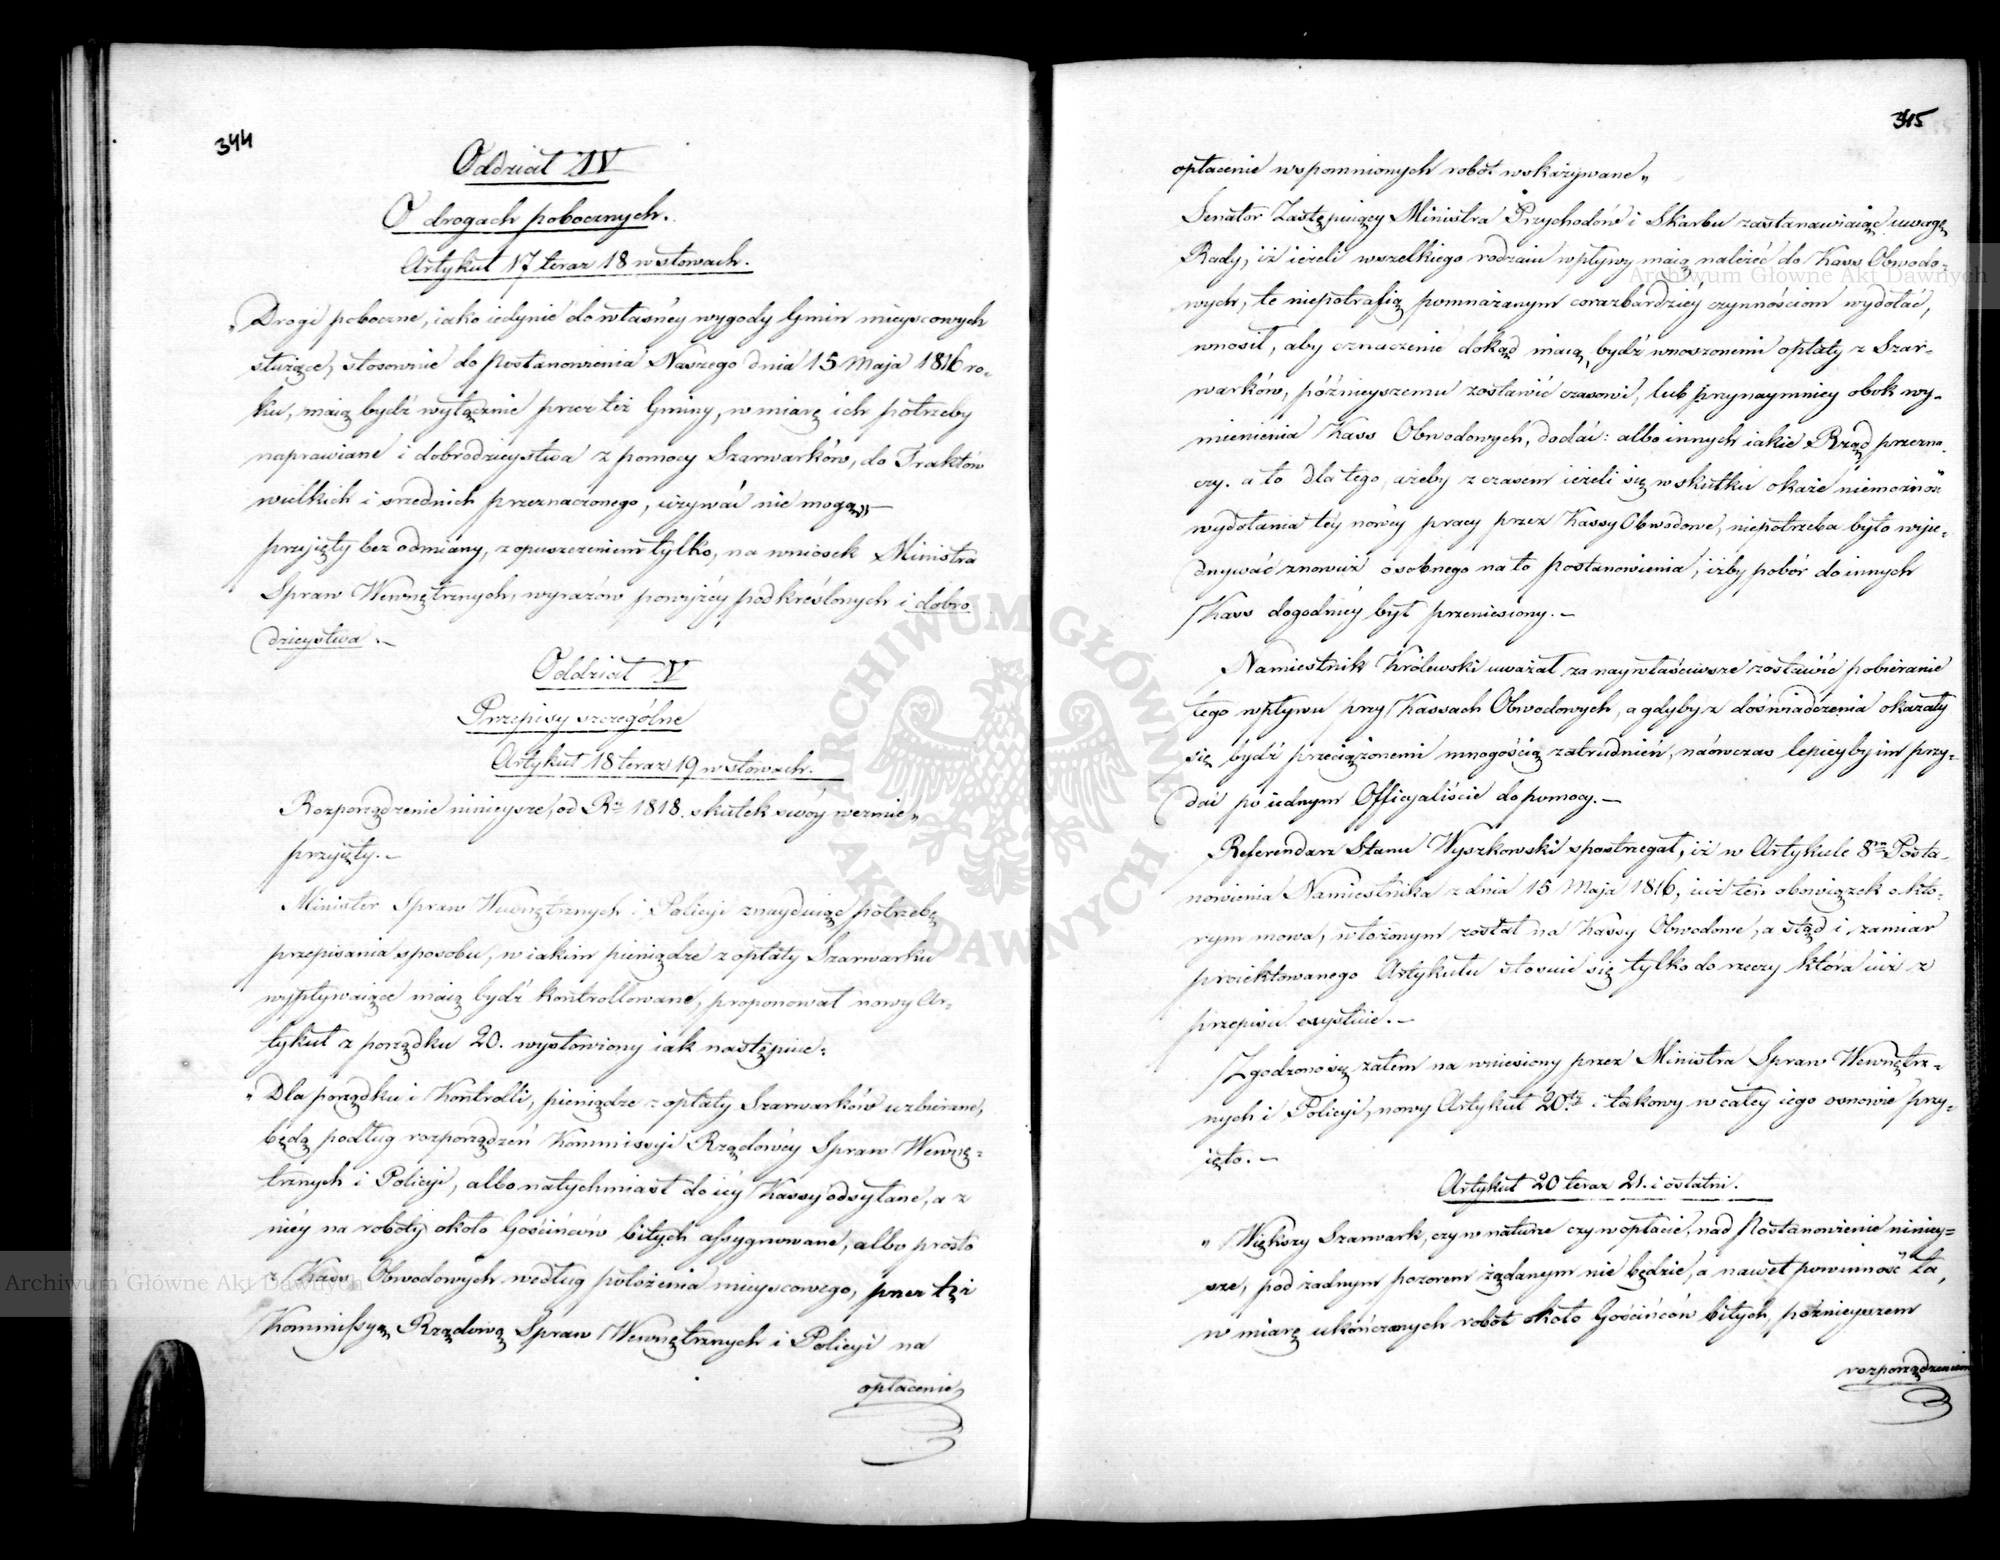 344
Oddział IV
O drogach pobocznych.
Artykuł 17 teraz 18 w słowach.
„Drogi poboczne, iako iedynie do własnéy wygody Gmin mieyscowych
służące, stosownie do Postanowienia Naszego dnia 15 Maja 1816 ro-
ku, maią bydź wyłącznie przez też Gminy, w miarę ich potrzeby
naprawiane i dobrodzieystwa z pomocy Szarwarków, do Traktów
wielkich i srzednich przeznaczonego, używać nie mogą„—
przyięty bez odmiany, z opuszczeniem tylko, na wniosek Ministra
Spraw Wewnętrznych, wyrazów powyżéy podkréślonych i dobro
dzieystwa.—
Oddział V
Przepisy szczególne
Artykuł 18 teraz 19 w słowach.
Rozporządzenie ninieysze, od Ru 1818. skutek swóy wezmie„
przyięty.—
Minister Spraw Wewnętrznych i Policyi znayduiąc potrzebę
przepisania sposobu, w iakim pieniądze z opłaty Szarwarku
wypływaiące maią bydź kontrollowane, proponował nowy Ar-
tykuł z porządku 20. wysłowiony iak następuie:
„Dla porządku i Kontrolli, pieniądze z opłaty Szarwarków uzbierane,
będą podług rozporządzeń Kommissyi Rządowéy Spraw Wewnę-
trznych i Policyi, albo natychmiast do iéy Kassy odsyłane, a z
niéy na roboty około Gościńców bitych assygnowane, albo prosto
z Kass Obwodowych według położenia mieyscowego, przez też
Kommissyą Rządową Spraw Wewnętrznych i Policyi na
opłacenie
345
opłacenie wspomnionych robót wskazywane„
Senator Zastępuiący Ministra Przychodów i Skarbu zastanawiaiąc uwagę
Rady, iż ieżeli wszelkiego rodzaiu wpływy maią należéć do Kass Obwodo-
wych, te niepotrafią pomnażanym corazbardziéy czynnościom wydołać,
wnosił, aby oznaczenie dokąd maią bydź wnoszonemi opłaty z Szar-
warków, późnieyszemu zostawić czasowi, lub przynaymniey obok wy-
mienienia Kass Obwodowych, dodać: albo innych iakie Rząd przezna-
czy. a to dla tego, ażeby z czasem ieżeli się w skutku okaże niemożność
wydołania téy nowéy pracy przez Kassy Obwodowe, niepotrzeba było wyie-
dnywać znowuż osobnego na to Postanowienia, iżby pobór do innych
Kass dogodniéy był przeniesiony.—
Namiestnik Królewski uważał za naywłaściwsze zostawić pobieranie
tego wpływu przy Kassach Obwodowych, a gdyby z doświadczenia okazały
się bydź przeciążonemi mnogością zatrudnień, naówczas lepiey by im przy-
dać po iednym Officyaliście do pomocy.—
Referendarz Stanu Wyszkowski spostrzegał, iż w Artykule 8m Posta-
nowienia Namiestnika z dnia 15 Maja 1816, iuż ten obowiązek o któ-
rym mowa, włożonym został na Kassy Obwodowe, a stąd i zamiar
proiektowanego Artykułu stosuie się tylko do rzeczy która iuż z
przepisu exystuie.—
Zgodzono się zatem na wniesiony przez Ministra Spraw Wewnętrz-
nych i Policyi, nowy Artykuł 20ty i takowy w całéy iego osnowie przy-
ięto.—
Artykuł 20 teraz 21. i ostatni.
„Większy Szarwark, czy w naturze czy w opłacie, nad Postanowienie niniey-
sze, pod żadnym pozorem żądanym nie będzie, a nawet powinność ta,
w miarę ukończonych robót około Gościńców bitych, poźnieyszem
rozporządzeniem
ARCHIWUM GŁÓWNE AKT DAWNYCH
Archiwum Główne Akt Dawnych
Archiwum Główne Akt Dawnych